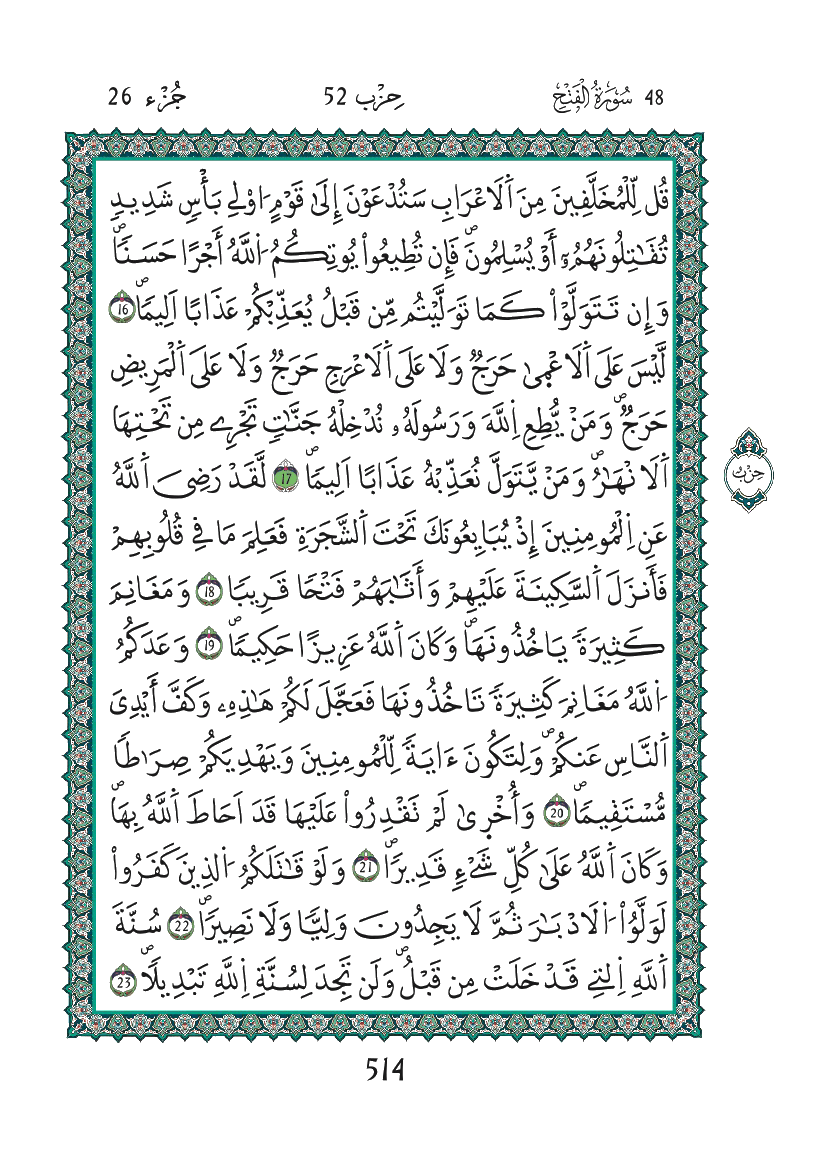 48 سُورَةُ الْفَتْحِ
حِزْب 52
جُزْء 26
قُل لِّلْمُخَلَّفِينَ مِنَ اَ۬لَاعْرَابِ سَتُدْعَوْنَ إِلَىٰ قَوْمٍ ا۟وْلِے بَأْسٖ شَدِيدٖ
تُقَٰتِلُونَهُمُۥٓ أَوْ يُسْلِمُونَۖ فَإِن تُطِيعُواْ يُوتِكُمُ اُ۬للَّهُ أَجْرًا حَسَنٗاۖ
وَإِن تَتَوَلَّوْاْ كَمَا تَوَلَّيْتُم مِّن قَبْلُ يُعَذِّبْكُمْ عَذَابًا اَلِيمٗاۖ 16
لَّيْسَ عَلَى اَ۬لَاعْم۪يٰ حَرَجٞ وَلَا عَلَى اَ۬لَاعْرَجِ حَرَجٞ وَلَا عَلَى اَ۬لْمَرِيضِ
حَرَجٞۖ وَمَنْ يُّطِعِ اِ۬للَّهَ وَرَسُولَهُۥ نُدْخِلْهُ جَنَّٰتٖ تَجْرِے مِن تَحْتِهَا
اَ۬لَانْهَٰرُۖ وَمَنْ يَّتَوَلَّ نُعَذِّبْهُ عَذَابًا اَلِيمٗاۖ 17 لَّقَدْ رَضِيَ اَ۬للَّهُ
عَنِ اِ۬لْمُومِنِينَ إِذْ يُبَايِعُونَكَ تَحْتَ اَ۬لشَّجَرَةِ فَعَلِمَ مَا فِے قُلُوبِهِمْ
فَأَنزَلَ اَ۬لسَّكِينَةَ عَلَيْهِمْ وَأَثَٰبَهُمْ فَتْحٗا قَرِيبٗا 18 وَمَغَانِمَ
كَثِيرَةٗ يَاخُذُونَهَاۖ وَكَانَ اَ۬للَّهُ عَزِيزًا حَكِيمٗاۖ 19 وَعَدَكُمُ
اُ۬للَّهُ مَغَانِمَ كَثِيرَةٗ تَاخُذُونَهَا فَعَجَّلَ لَكُمْ هَٰذِهِۦ وَكَفَّ أَيْدِيَ
اَ۬لنَّاسِ عَنكُمْۖ وَلِتَكُونَ ءَايَةٗ لِّلْمُومِنِينَ وَيَهْدِيَكُمْ صِرَٰطٗا
مُّسْتَقِيمٗاۖ 20 وَأُخْر۪يٰ لَمْ تَقْدِرُواْ عَلَيْهَا قَدَ اَحَاطَ اَ۬للَّهُ بِهَاۖ
وَكَانَ اَ۬للَّهُ عَلَىٰ كُلِّ شَےْءٖ قَدِيرٗاۖ 21 وَلَوْ قَٰتَلَكُمُ اُ۬لذِينَ كَفَرُواْ
لَوَلَّوُاْ اُ۬لَادْبَٰرَ ثُمَّ لَا يَجِدُونَ وَلِيّٗا وَلَا نَصِيرٗاۖ 22 سُنَّةَ
اَ۬للَّهِ اِ۬لتِے قَدْ خَلَتْ مِن قَبْلُۖ وَلَن تَجِدَ لِسُنَّةِ اِ۬للَّهِ تَبْدِيلٗاۖ 23
حِزْب
514